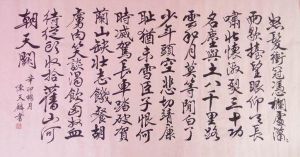 怒髮衝冠憑欄處瀟
雨歇抬望眼仰天長
嘯壯懷激烈三十功
名塵與土八千里路
雲和月莫等閒白了
少年頭空悲切靖康
恥猶未雪臣子恨何
時滅駕長車踏破賀
蘭山缺壯志饑餐胡
虜肉笑談渴飲匈奴血
待從頭收拾舊山河
朝天闕
辛卯月
陳天書